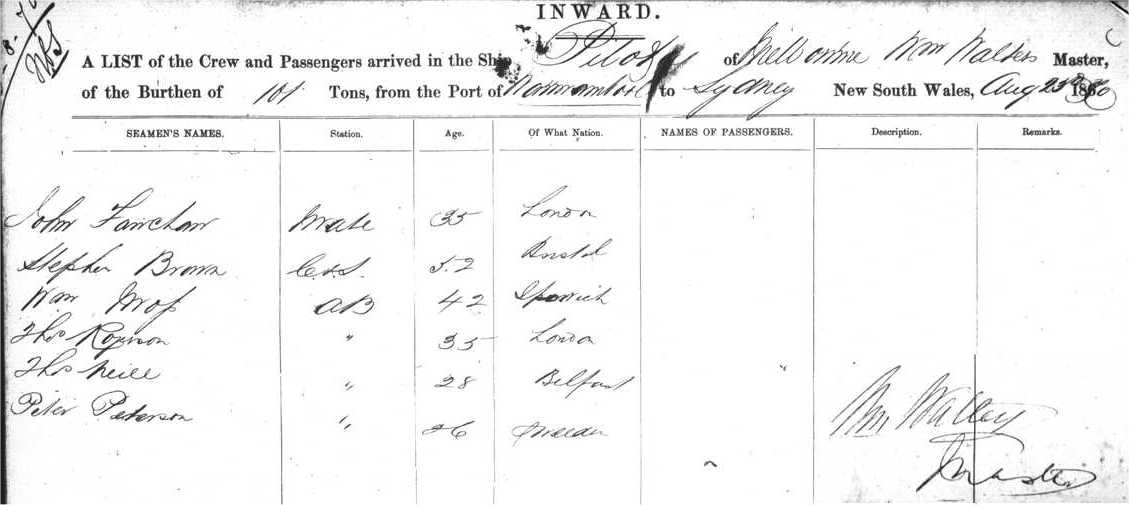 INWARD.
A LIST of the Crew and Passengers arrived in the Ship Pilot of Melbourne Wm Master,
of the Burthen of 101 Tons, from the Port of to Sydney New South Wales, Aug 186
SEAMEN'S NAMES. Station. Age. Of What Nation. NAMES OF PASSENGERS. Description. Remarks.
John Mate 35 London
Stephen Brown C&S. 52 Bristol
Wm AB 42 Ipswich
Thos " 35 London
Thos Neill " 28 Belfast
Peter Peterson " 26 Sweden
Wm
Master